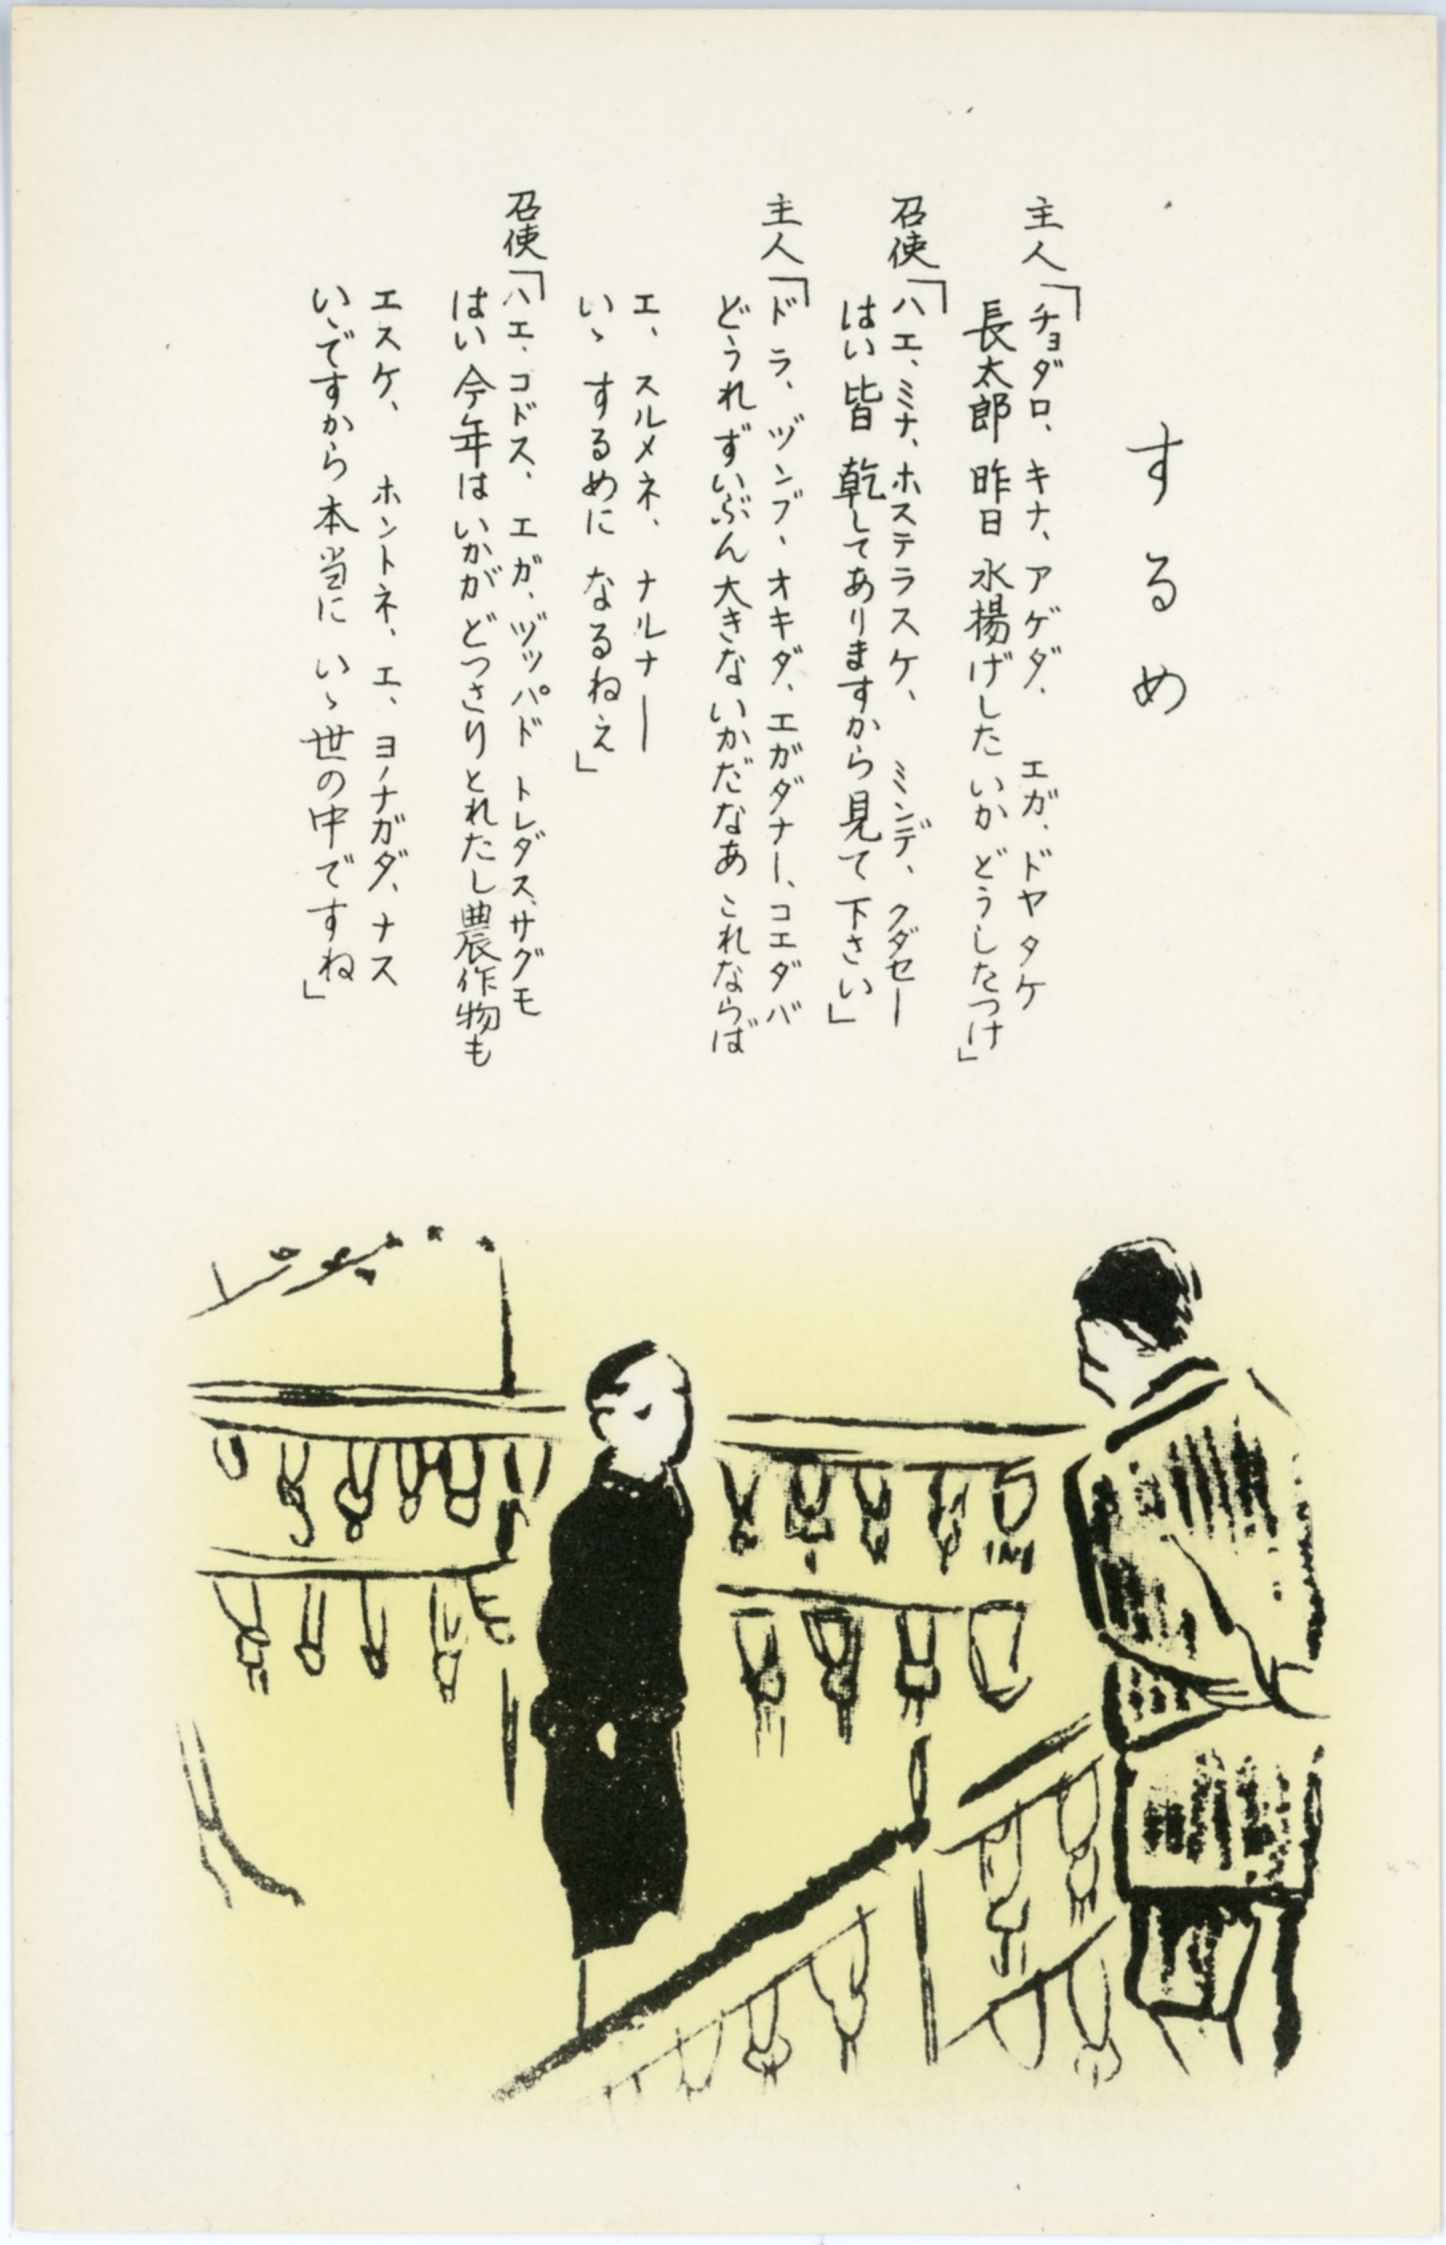 するめ
主人「チョダロ、キナ、アゲダ、エガ、ドヤタケ
長太郎 昨日 水揚げした いか どうしたつけ」
召使「ハエ、ミナ、ホステラスケ、ミンデ、クダセー
はい 皆 乾してありますから見て下さい」
主人「ドラ、ヅンブ、オキダ、エガダナー、コエダバ
どうれ ずいぶん大きな いかだなあ これならば
エ、スルメネ、ナルナー
いゝ するめに なるねえ」
召使「ハエ、コドス、エガ、ヅッパド トレダス、サグモ
はい 今年は いかが どつさりとれたし農作物も
エスケ、ホントネ、エ、ヨノナガダ、ナス
いゝですから本当に いゝ世の中ですね」